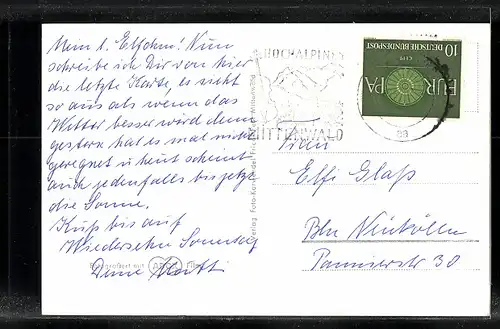 Mein l. Elfchen! Nun
schreibe ich Dir von hier
die letzte Karte, es sieht
so aus als wenn das
Wetter besser wird denn
gestern hat es mal nicht
geregnet u heut scheint
auch jedenfalls bis jetzt
die Sonne.
Kuß bis auf
Wiedersehn Sonntag
Deine
HOCHALPINER
MITTENWALD
aa
10 DEUTSCHE BUNDESPOST
CEPT
EUROPA
Frau
Elfi Glaß
Bln Neukölln
Pannierstr 30
Verlag Foto-Kunst
Mittenwald